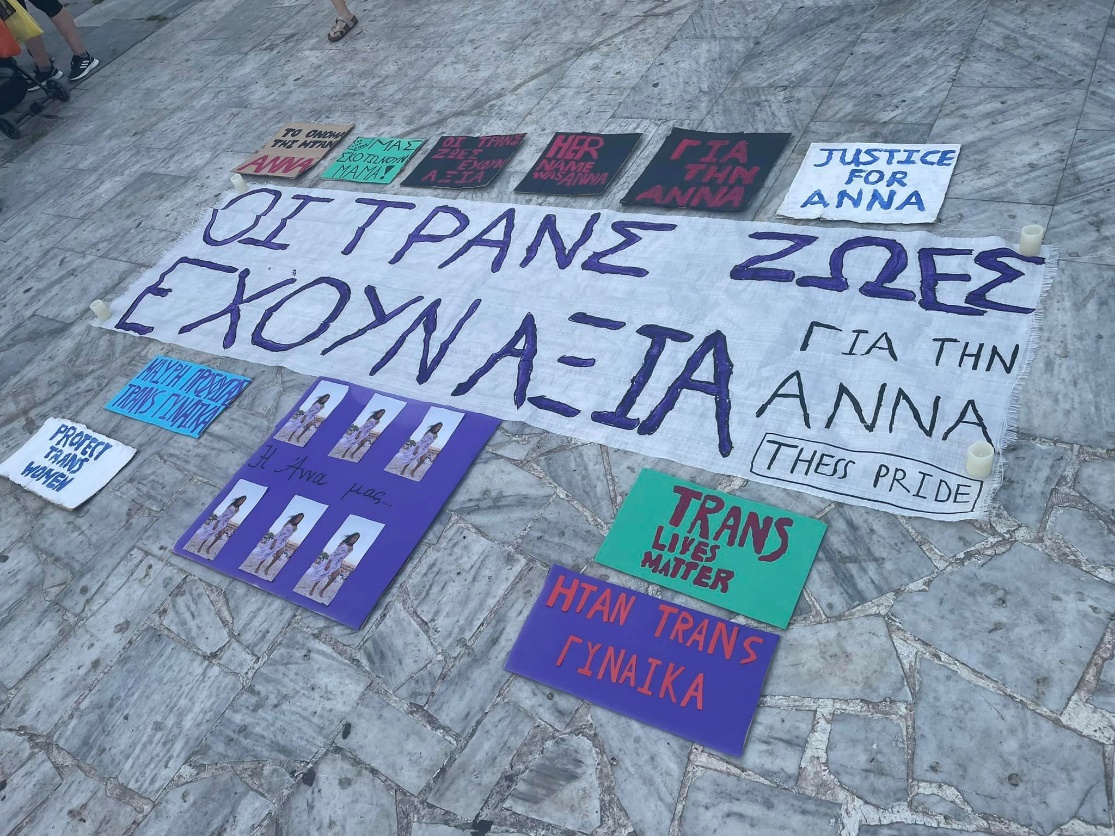 ΤΟ ΟΝΟΜΑ
ΤΗΣ ΗΤΑΝ
ΑΝΝΑ
ΜΑΣ
ΣΚΟΤΩΝΟΥΝ
ΜΑΜΑ!
ΟΙ ΤΡΑΝΣ
ΖΩΕΣ
ΕΧΟΥΝ
ΑΞΙΑ
HER
NAME
WAS ANNA
ΓΙΑ
ΤΗΝ
ΑΝΝΑ
JUSTICE
FOR
ANNA
ΟΙ ΤΡΑΝΣ ΖΩΕΣ
ΕΧΟΥΝ ΑΞΙΑ
ΓΙΑ ΤΗΝ
ΑΝΝΑ
THESS PRIDE
ΤΡΑΝΣ ΓΥΝΑΙΚΑ
PROTECT
TRANS
WOMEN
Η Άννα μας...
TRANS
LIVES
MATTER
ΗΤΑΝ TRANS
ΓΥΝΑΙΚΑ